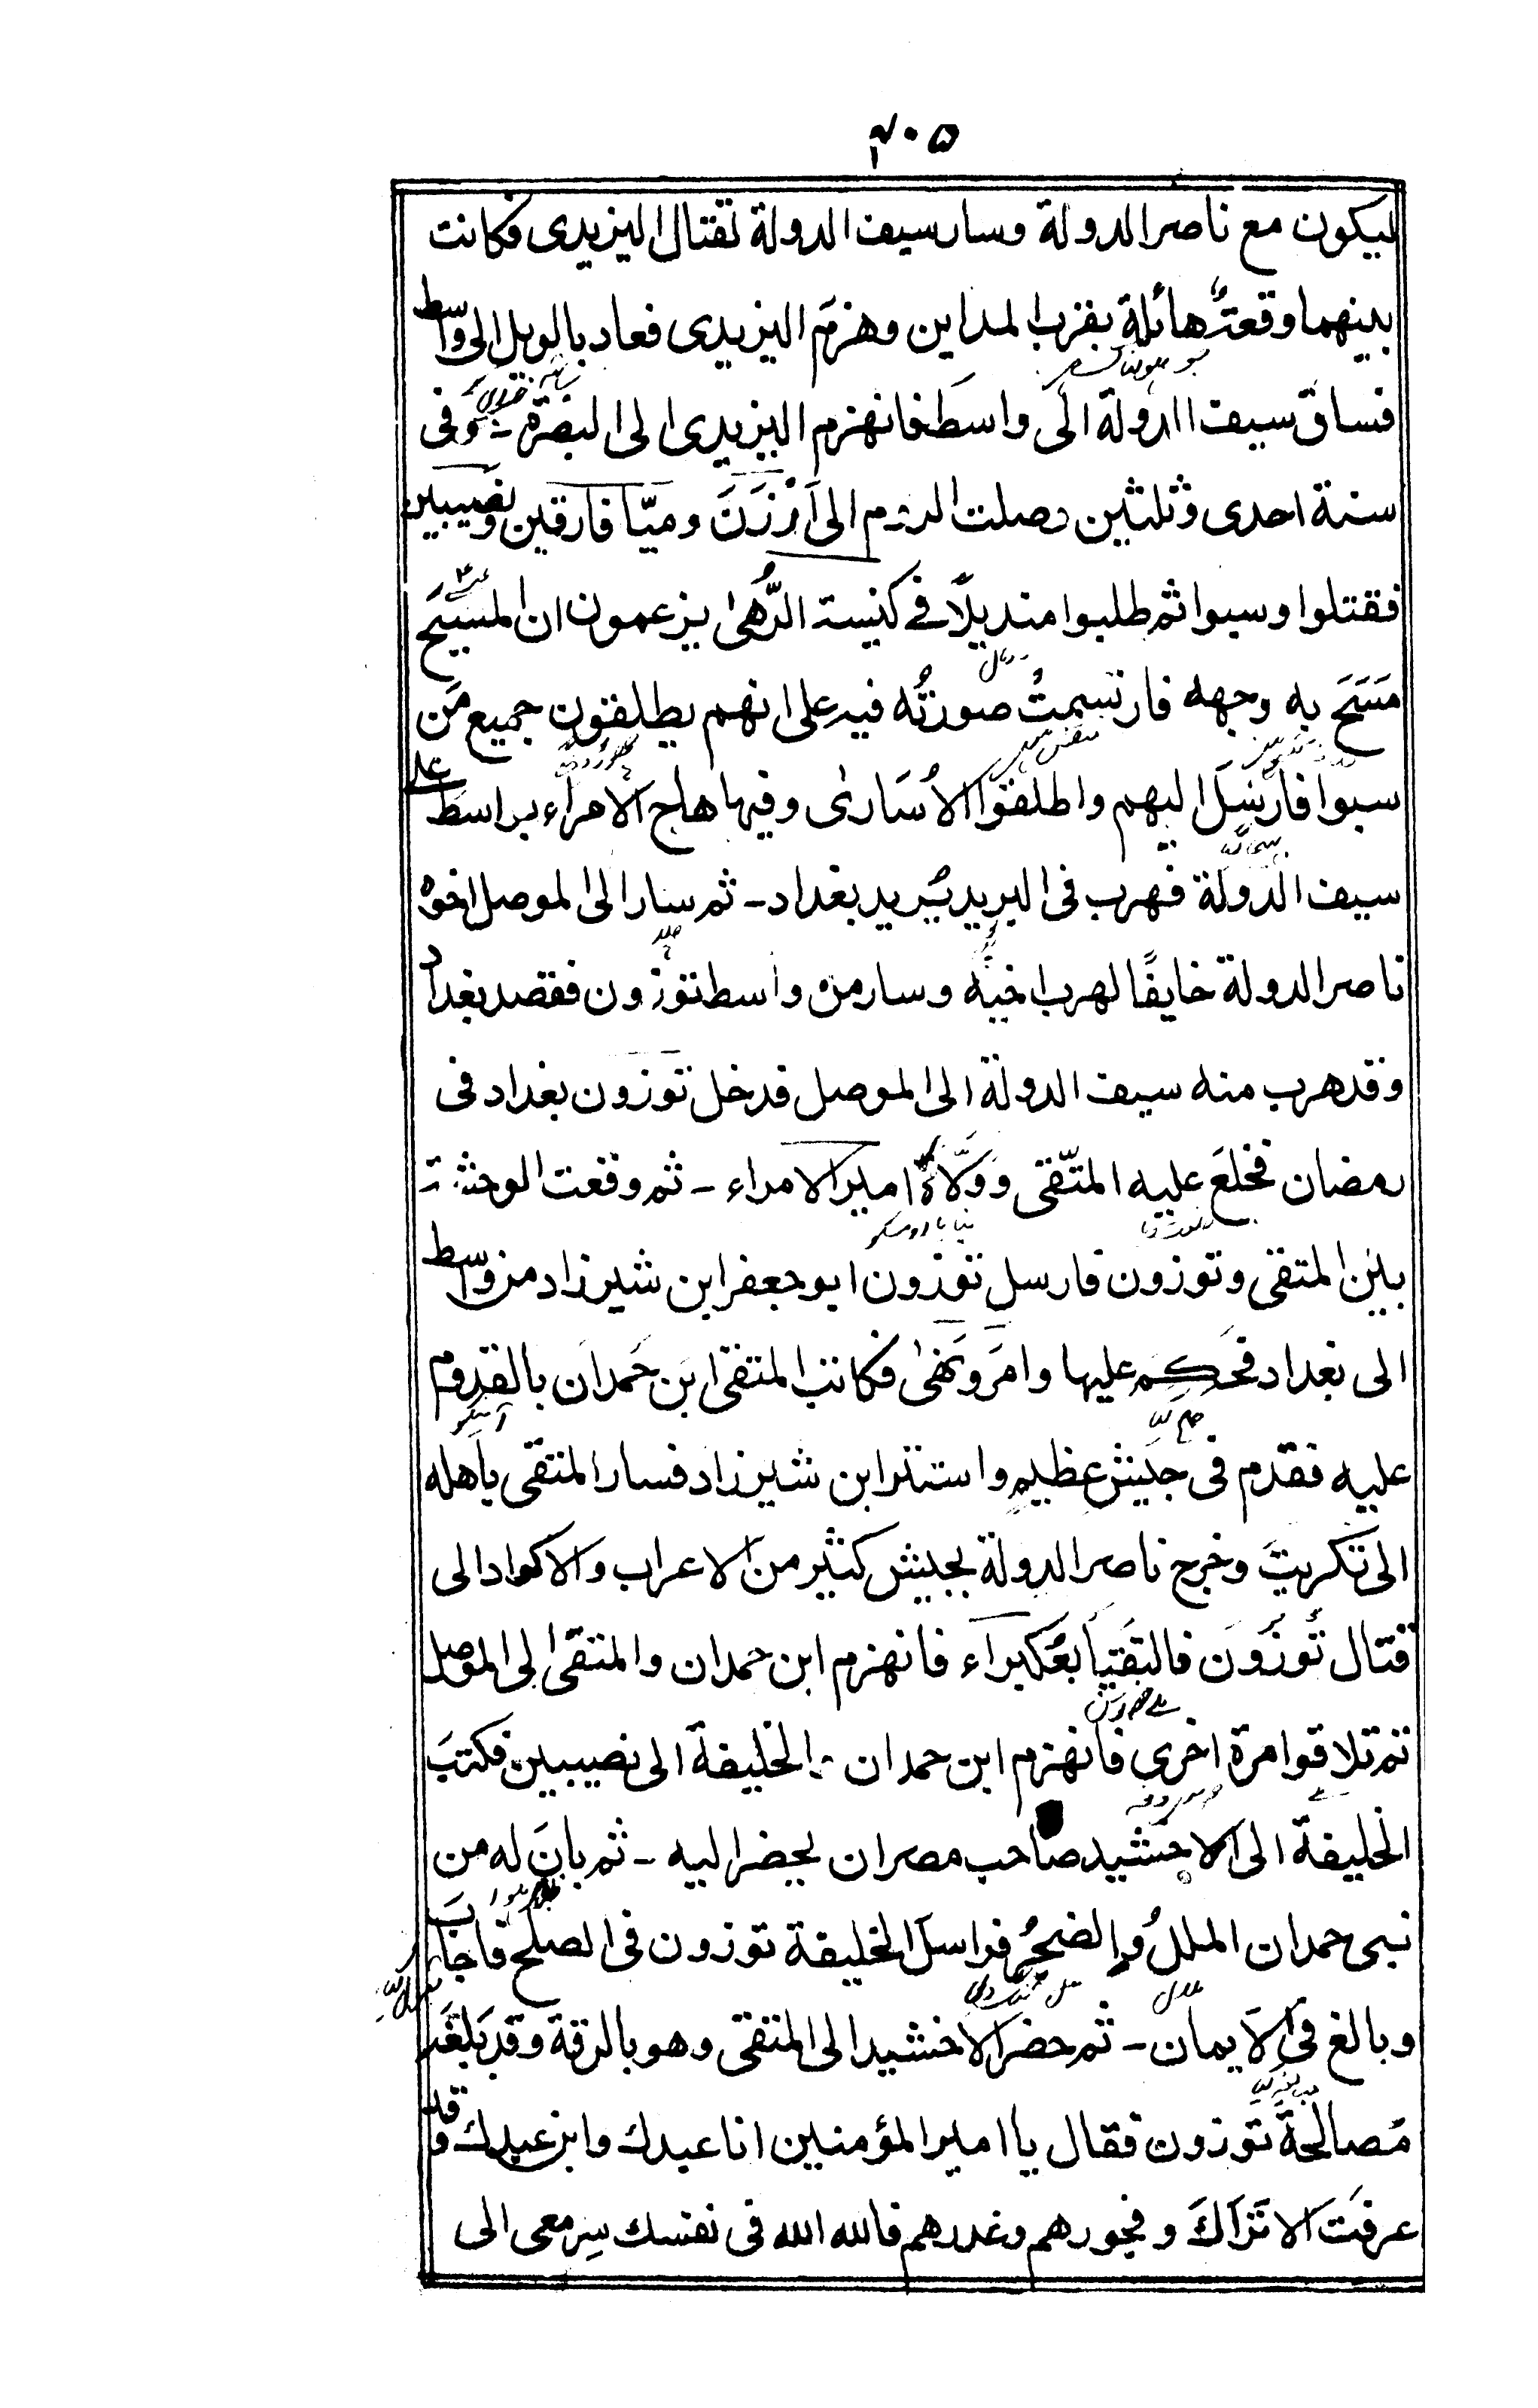 ۴۰۵
ليكون مع ناصر الدولة وسار سيف الدولة لقتال اليزيدى فكانت
بينهما وقعةٌ هائلة بقرب المداين وهزم اليزيدى فعاد بالويل الى واسط
فساق سيف الدولة الى واسط فانهزم اليزيدى الى البصرة - وفى
سنة احدى وثلثين وصلت الروم الى اَرْزَنَ وميّا فارقين ونصيبين
فقتلوا وسبوا ثم طلبوا منديلًا فے كنيسة الرُّهىٰ يزعمون ان المسيح
مَسَحَ به وجهه فارتسمتْ صورتُه فيه على انهم يطلقون جميع مَن
سبوا فارسل اليهم واطلقوا الاُسَارىٰ وفيها هاج الامراء بواسط علے
سيف الدولة فهرب فى البريد يُريد بغداد - ثم سار الى الموصل اخوه
ناصر الدولة خايفًا لهرب اخيه وسار من واسط توزون فقصد بغداد
وقد هرب منه سيف الدولة الى الموصل فدخل توزون بغداد فى
رمضان فخلع عليه المتّقى ووَلَّاهُ امير الامراء - ثم وقعت الوحشة
بين المتقى وتوزون فارسل توزون ابو جعفر ابن شيرزاد من واسط
الى بغداد فحكم عليها وامَر ونَهىٰ فكاتب المتقى ابن حَمدان بالقدوم
عليه فقدم فى جيش عظيم واستتر ابن شيرزاد فسار المتقى باهله
الى تكريت وخرج ناصر الدولة بجيش كثير من الاعراب والاكراد الى
قتال تُوزون فالتقيا بعُكبراء فانهزم ابن حمدان والمتقى الى الموصل
ثم تلاقوا مرة اخرى فانهزم ابن حمدان والخليفة الى نصيبين فكتبَ
الخليفة الى الاخشيد صاحب مصر ان يحضر اليه - ثم بانَ له من
بنى حمدان المللُ والضجرُ فراسل الخليفة توزون فى الصلح فاجابَ
وبالغ فى الايمان - ثم حضر الاخشيد الى المتقى وهو بالرقة وقد بَلغَه
مصالحة توزون فقال يا امير المؤمنين انا عبدك وابن عبدك وقد
عرفتَ الاتراكَ وفجورهم وغدرهم فالله الله فى نفسك سِر معى الى